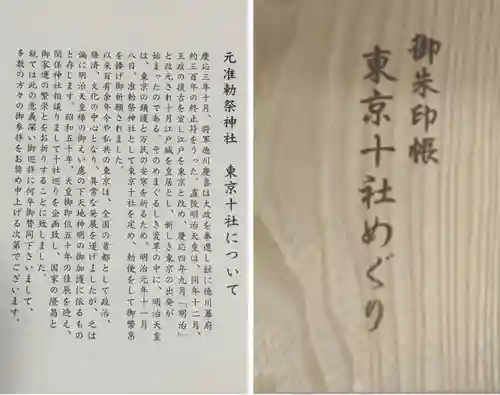 元准勅祭神社 東京十社について
慶応三年十月、将軍徳川慶喜は大政を奉還し玆に徳川幕府
約三百年の終止符をうった。直後明治天皇は、同年十二月、
王政の復古を宣し江戸を東京と改め、慶応四年九月「明治」
と改元され十月江戸城を皇居とし、新しき東京の出発が
始まったのである。そのめまぐるしき変革の中に、明治天皇
は、東京の鎮護と万民の安寧を祈るため、明治元年十一月
八日、准勅祭神社として東京十社を定め、勅使をして御幣帛
を捧げ御祈願されました。
以来百有余年、今や私共の東京は、全国の首都として政治、
経済、文化の中心となり、異常な発展を遂げましたが、之は
偏に明治天皇様の御えい慮の下天地神明の御加護に依るもの
と存じます。昭和五十年、天皇御即位五十年の佳辰を迎え、
関係神社相議りまして十社巡りを企画致し、国家の隆昌と
御家運の繁栄とをお祈りすることに致しました。
就ては此の意義深い御巡拝に何卒御賛同下さいまして、
多数の方々の御参拝をお奨め申上げる次第でございます。
御朱印帳
東京十社めぐり